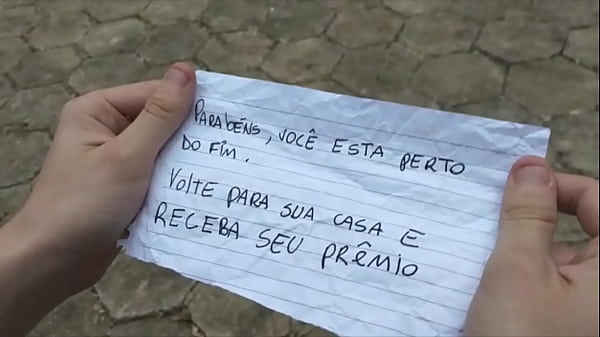 PARABÉNS, VOCÊ ESTA PERTO
DO FIM.
VOLTE PARA SUA CASA E
RECEBA SEU PRÊMIO